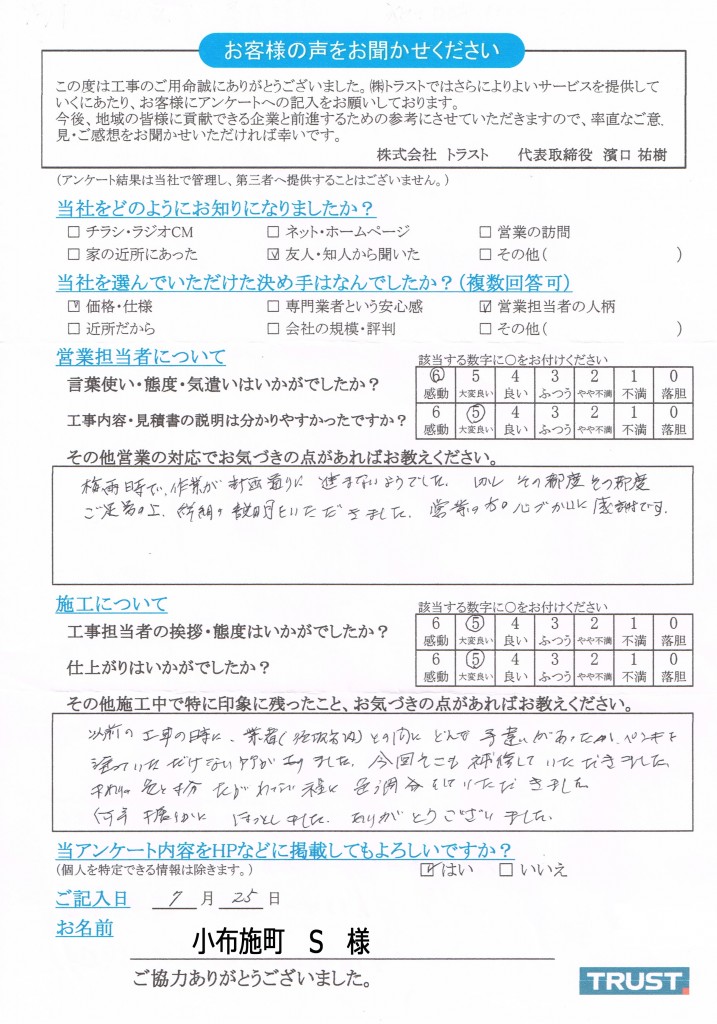 お客様の声をお聞かせください
この度は工事のご用命誠にありがとうございました。㈱トラストではさらによりよいサービスを提供して
いくにあたり、お客様にアンケートへの記入をお願いしております。
今後、地域の皆様に貢献できる企業と前進するための参考にさせていただきますので、率直なご意
見・ご感想をお聞かせいただければ幸いです。
株式会社 トラスト 代表取締役 濱口 祐樹
(アンケート結果は当社で管理し、第三者へ提供することはございません。)
当社をどのようにお知りになりましたか?
□ チラシ・ラジオCM □ ネット・ホームページ □ 営業の訪問
□ 家の近所にあった ☑ 友人・知人から聞いた □ その他( )
当社を選んでいただけた決め手はなんでしたか?(複数回答可)
☑ 価格・仕様 □ 専門業者という安心感 ☑ 営業担当者の人柄
□ 近所だから □ 会社の規模・評判 □ その他( )
営業担当者について 該当する数字に○をお付けください
言葉使い・態度・気遣いはいかがでしたか? ⑥ 5 4 3 2 1 0
感動 大変良い 良い ふつう やや不満 不満 落胆
工事内容・見積書の説明は分かりやすかったですか? 6 ⑤ 4 3 2 1 0
感動 大変良い 良い ふつう やや不満 不満 落胆
その他営業の対応でお気づきの点があればお教えください。
梅雨時で、作業が計画通りに進まないようでした。 その都度その都度
説明をいただきました。営業の方の心づかいに感謝です。
施工について 該当する数字に○をお付けください
工事担当者の挨拶・態度はいかがでしたか? 6 ⑤ 4 3 2 1 0
感動 大変良い 良い ふつう やや不満 不満 落胆
仕上がりはいかがでしたか? 6 ⑤ 4 3 2 1 0
感動 大変良い 良い ふつう やや不満 不満 落胆
その他施工中で特に印象に残ったこと、お気づきの点があればお教えください。
以前の工事の時に、業者 との間にどんな手違いがあったか、ペンキを
塗っていただけない がありました。今回そこも補修していただきました。
色を調合していただきました
ほっとしました。ありがとうございました。
当アンケート内容をHPなどに掲載してもよろしいですか?
(個人を特定できる情報は除きます。) ☑ はい □ いいえ
ご記入日 7 月 25 日
お名前
小布施町 S 様
ご協力ありがとうございました。
TRUST